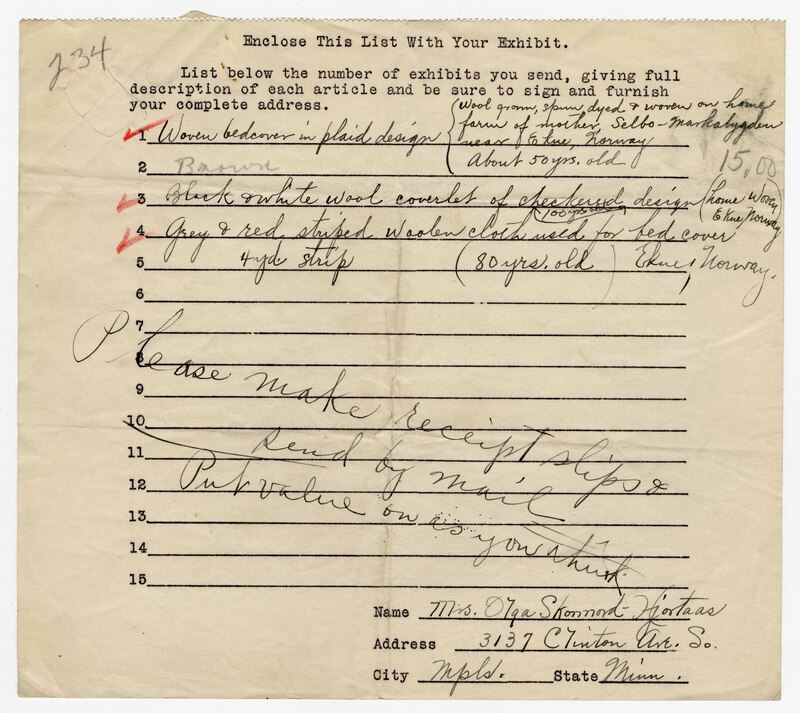 234
Enclose This List With Your Exhibit.
List below the number of exhibits you send, giving full
description of each article and be sure to sign and furnish
your complete address.
1 Woven bedcover in plaid design (Wool grown, spun, dyed & woven on home
farm of mother, Selbo-Marksbygden
near Ekne, Norway
About 50 yrs. old
2
15,00
Brown
3 Black & white wool coverlet of checkered design (home woven
Ekne, Norway)
(100 yrs old)
4 Grey & red striped woolen cloth used for bed cover
5 4 yd strip (80 yrs. old) Ekne, Norway.
6
7
8
9
10
11
12
13
14
15
Please make receipt slips &
send by mail
Put value on as you think.
Name Mrs. Olga Skonnord-Hjortaas
Address 3137 Clinton Ave. So.
City Mpls. State Minn.